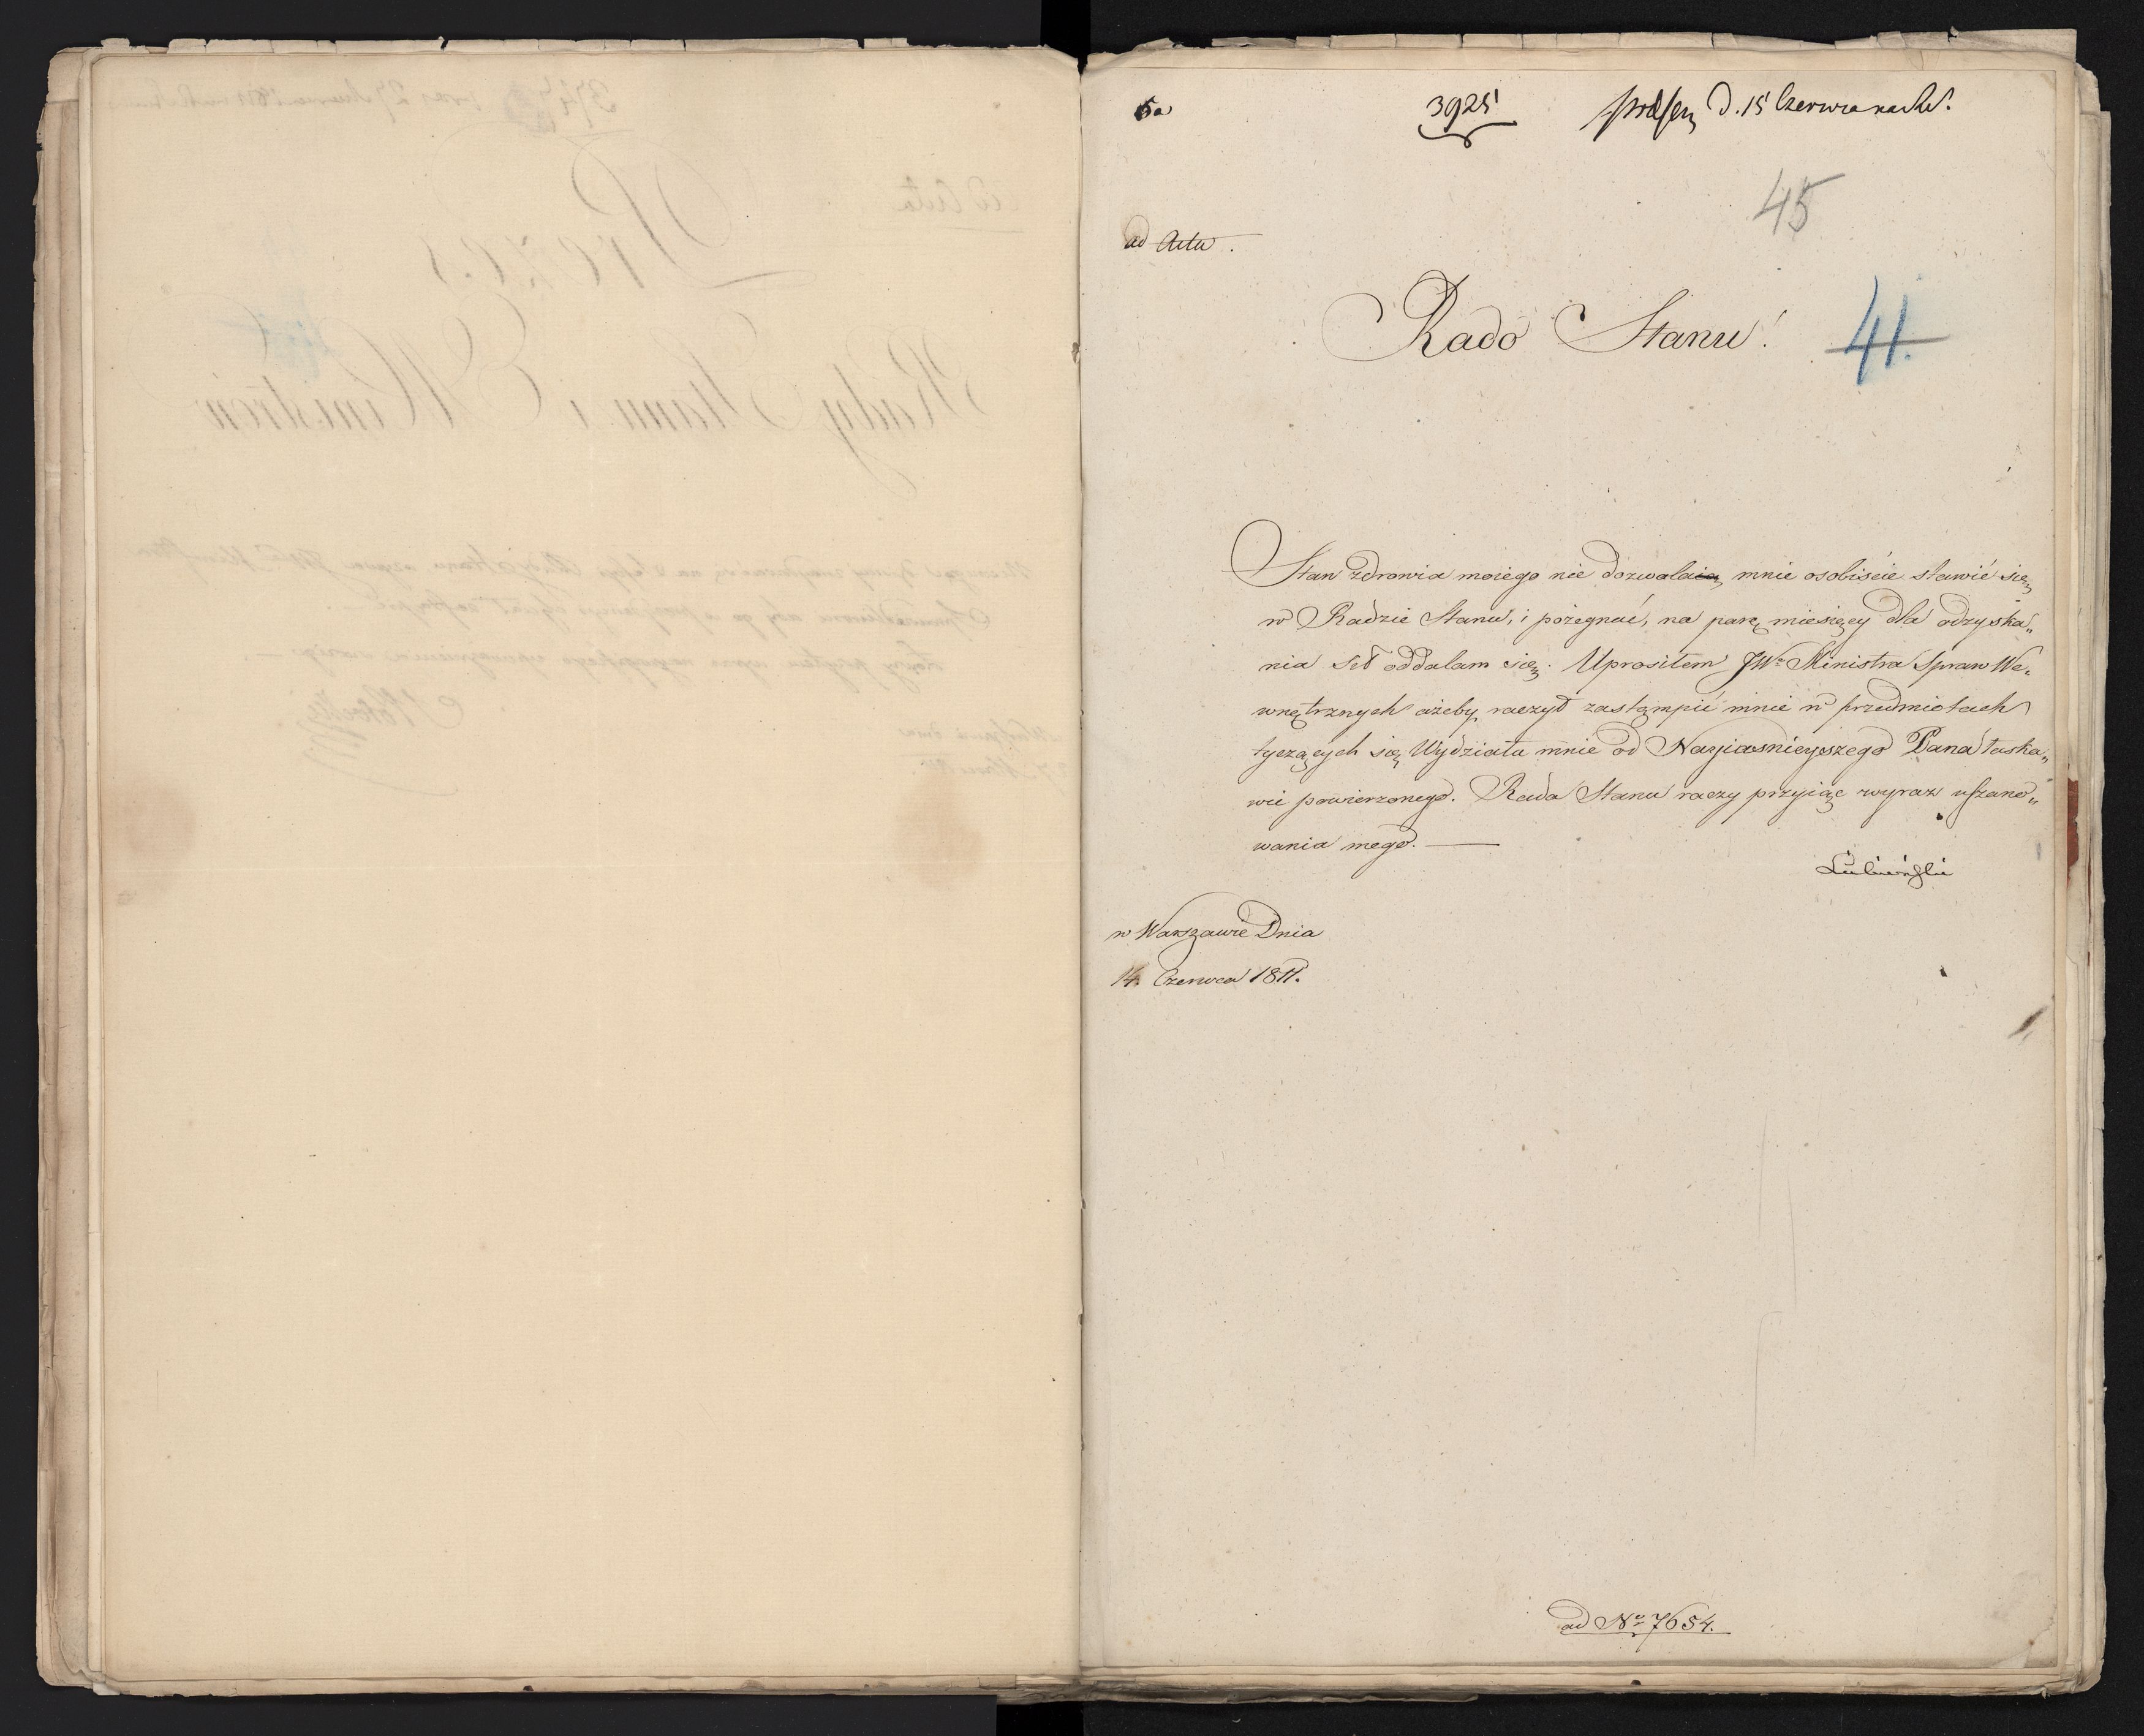 5a
3925
præsen d. 15 Czerwca
45
ad Acta.
Rado Stanu!
41.
Stan zdrowia moiego nie dozwala mnie osobiście stawić się
w Radzie Stanu, i pożegnać, na parę miesięcy dla odzyska„
nia sił oddalam się. Uprosiłem JWo Ministra Spraw We„
wnętrznych ażeby raczył zastąmpić mnie w przedmiotach
tyczących się Wydziału mnie od Nayiaśnieyszego Pana łaska„
wie powierzonego. Rada Stanu raczy przyiąc wyraz uszano„
wania mego. —
Łubieński
w Warszawie Dnia
14. Czerwca 1811.
ad No 7654.